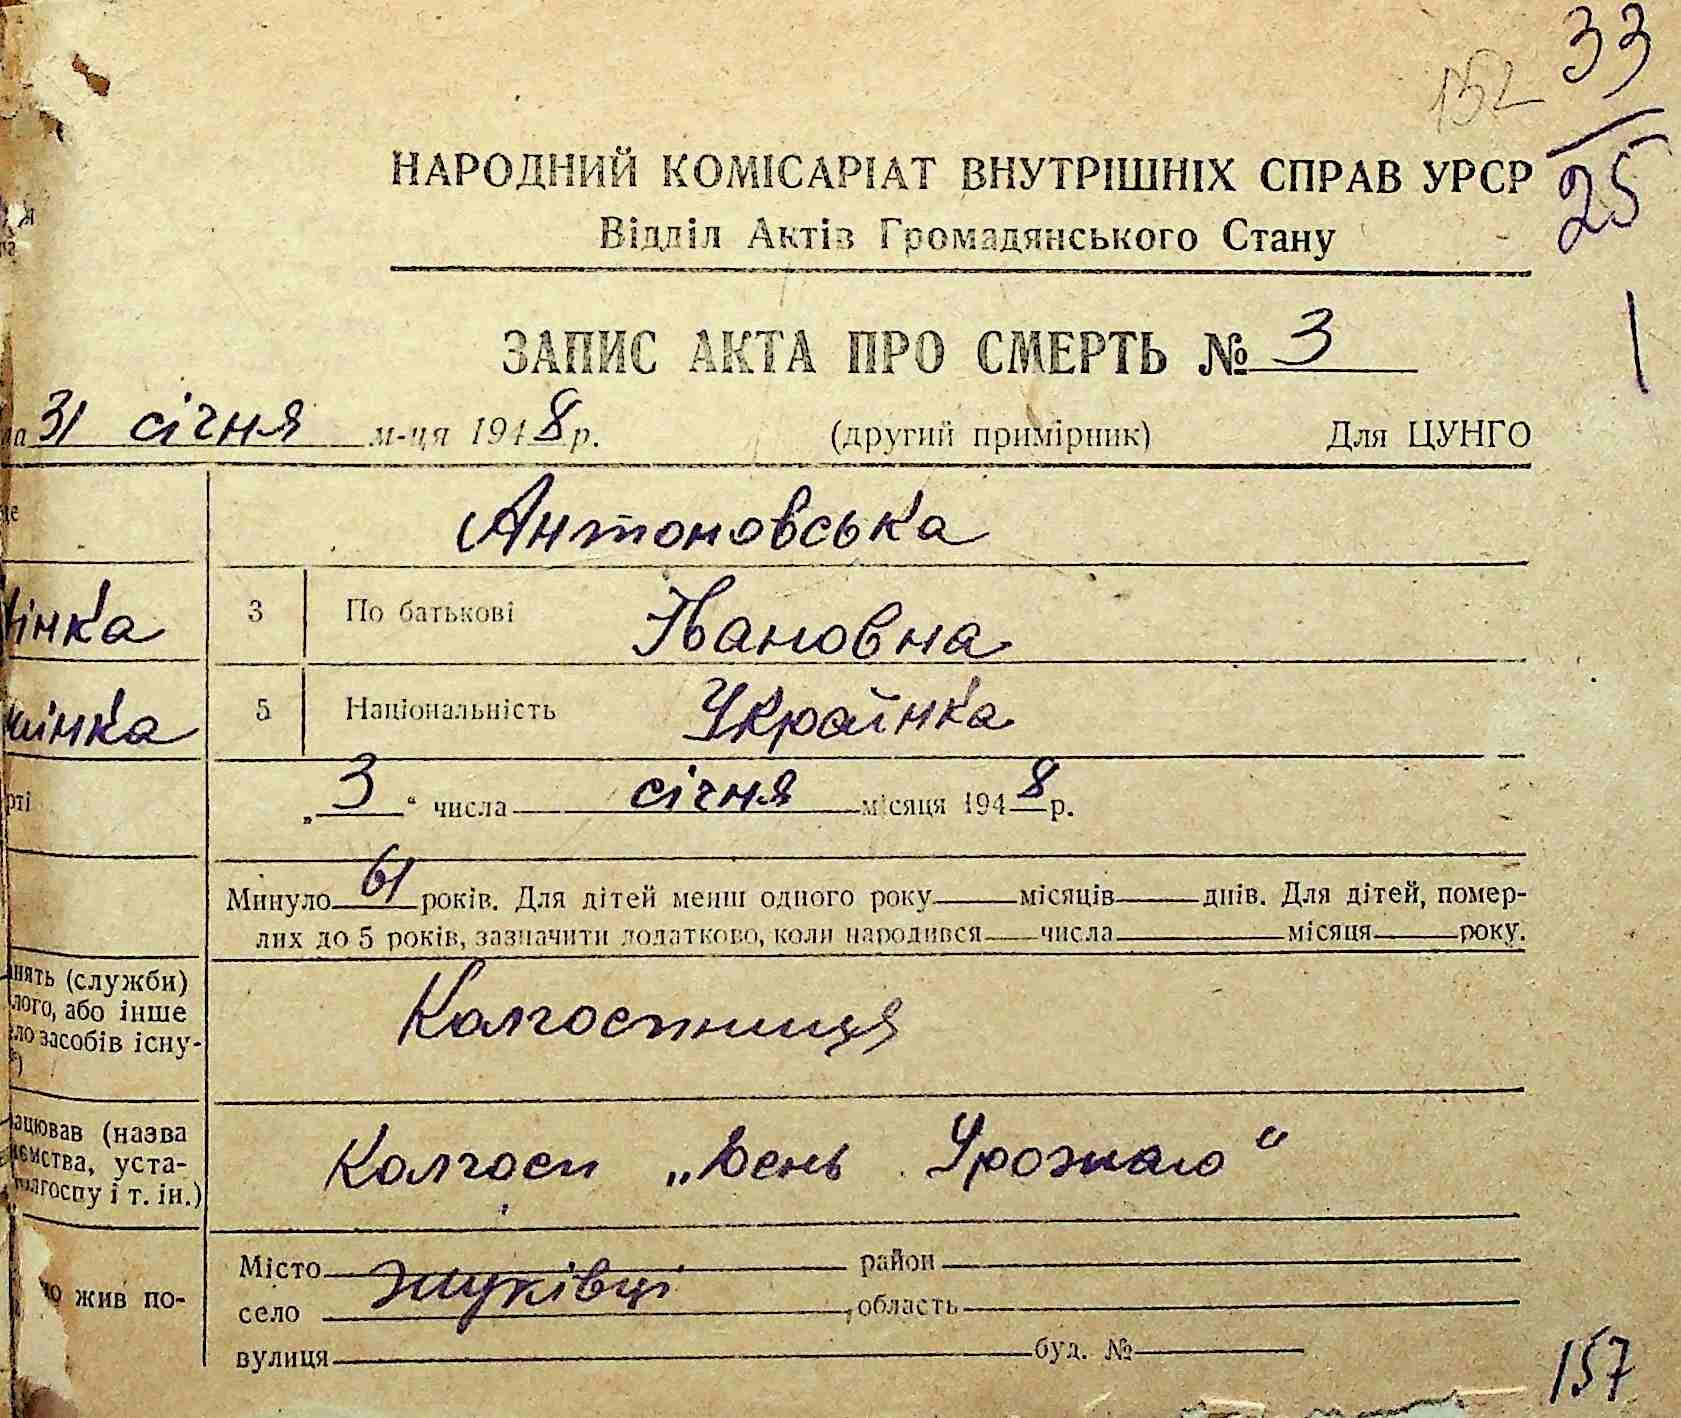 33
152
25
НАРОДНИЙ КОМІСАРІАТ ВНУТРІШНІХ СПРАВ УРСР
Відділ Актів Громадянського Стану
1
ЗАПИС АКТА ПРО СМЕРТЬ № 3
31 січня м-ця 1948 р. (другий примірник) Для ЦУНГО
Антоновська
інка 3 По батькові Івановна
інка 5 Національність Українка
рті „3“ числа січня місяця 1948 р.
Минуло 61 років. Для дітей менш одного року місяців днів. Для дітей, помер-
лих до 5 років, зазначити додатково, коли народився числа місяця року.
нять (служби)
лого, або інше
ло засобів існу-
Колгоспниця
ацював (назва
ємства, уста-
колгоспу і т. ін.)
Колгосп „День Урожаю“
Місто район
жив по-
село Жуківці, область
вулиця буд. №
157